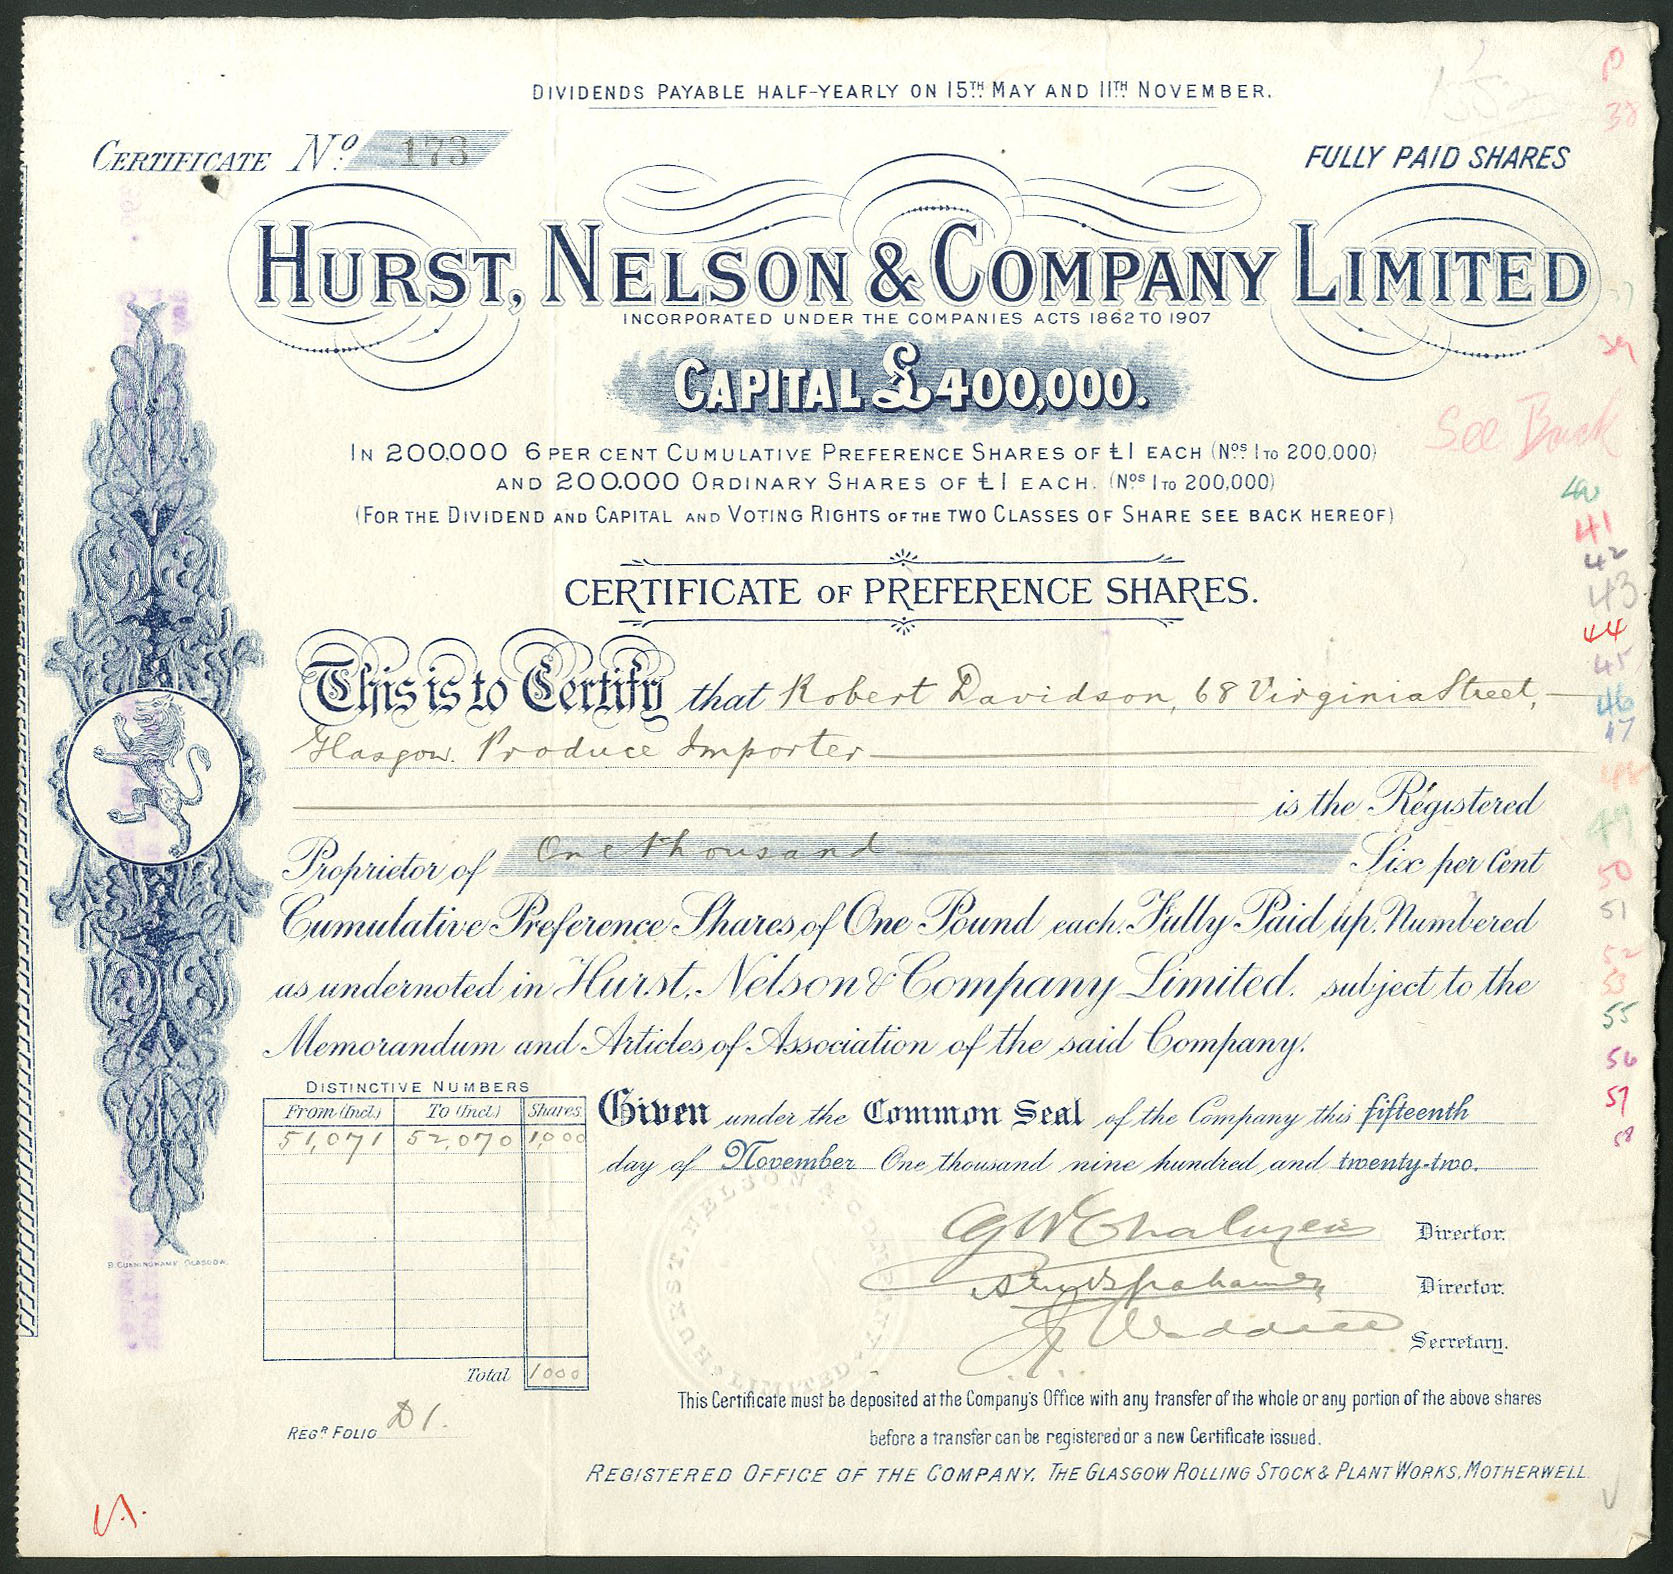 DIVIDENDS PAYABLE HALF-YEARLY ON 15TH MAY AND 11TH NOVEMBER.
CERTIFICATE No. 173
FULLY PAID SHARES
HURST, NELSON & COMPANY LIMITED
INCORPORATED UNDER THE COMPANIES ACTS 1862 TO 1907
CAPITAL £400,000.
See Back
IN 200,000 6 PER CENT CUMULATIVE PREFERENCE SHARES OF £1 EACH (Nos. 1 TO 200,000)
AND 200,000 ORDINARY SHARES OF £1 EACH. (Nos 1 TO 200,000)
(FOR THE DIVIDEND AND CAPITAL AND VOTING RIGHTS OF THE TWO CLASSES OF SHARE SEE BACK HEREOF)
CERTIFICATE OF PREFERENCE SHARES.
This is to Certify that Robert Davidson, 68 Virginia Street,
Glasgow. Produce Importer
is the Registered
Proprietor of One thousand Six per Cent
Cumulative Preference Shares of One Pound each. Fully Paid up. Numbered
as undernoted in Hurst, Nelson & Company Limited. subject to the
Memorandum and Articles of Association of the said Company.
DISTINCTIVE NUMBERS
From (Incl.) To (Incl.) Shares
51,071 52,070 1,000
Total 1000
Given under the Common Seal of the Company this fifteenth
day of November One thousand nine hundred and twenty-two.
HURST, NELSON & COMPANY LIMITED
Director.
Director.
Secretary.
B. CUNNINGHAME GLASGOW.
REGR FOLIO D1.
This Certificate must be deposited at the Company's Office with any transfer of the whole or any portion of the above shares
before a transfer can be registered or a new Certificate issued.
REGISTERED OFFICE OF THE COMPANY, THE GLASGOW ROLLING STOCK & PLANT WORKS, MOTHERWELL
38
39
40
41
42
43
44
45
46
47
48
49
50
51
52
53
55
56
57
58